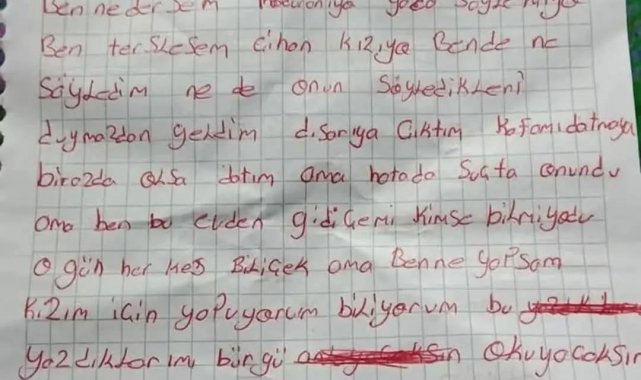 Ben ne dersem
Ben terslesem cihan kızıya Bende ne
Söyledim ne de onun Söyledikleni
duymazdan geldim dısarıya Cıktım Kafamıdatnaya
birazda olsa datım ama hatada Suçta onundu
ama ben bu evden gidiGemi kimse bilmiyadu
O gün her kes BiliÇek ama Benne yaPsam
kızım için yaPıyorum biliyorum bu
yazdıklarımı bürgü okuyocaksın